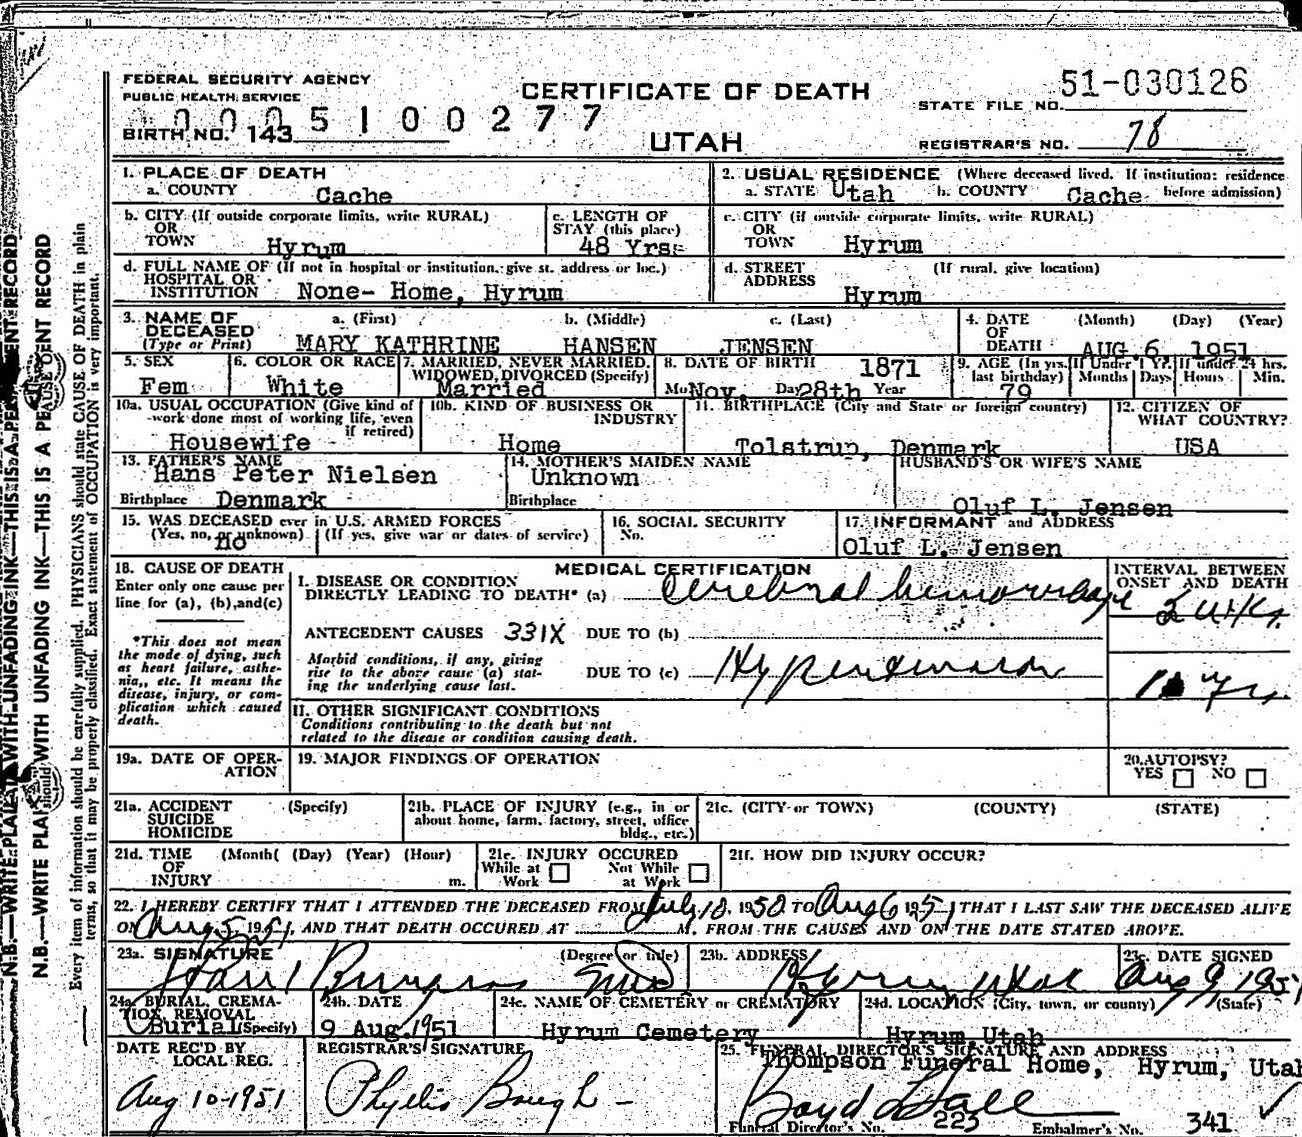 FEDERAL SECURITY AGENCY
PUBLIC HEALTH SERVICE
0005100277
BIRTH NO. 143
CERTIFICATE OF DEATH
UTAH
51-030126
STATE FILE NO.
REGISTRAR'S NO. 78
1. PLACE OF DEATH
a. COUNTY Cache
2. USUAL RESIDENCE (Where deceased lived. If institution: residence before admission)
a. STATE Utah b. COUNTY Cache
b. CITY (If outside corporate limits, write RURAL)
OR
TOWN Hyrum
c. LENGTH OF
STAY (this place)
48 Yrs.
c. CITY (if outside corporate limits, write RURAL)
OR
TOWN Hyrum
d. FULL NAME OF (If not in hospital or institution, give st. address or loc.)
HOSPITAL OR
INSTITUTION None- Home, Hyrum
d. STREET (If rural, give location)
ADDRESS
Hyrum
3. NAME OF a. (First) b. (Middle) c. (Last)
DECEASED
(Type or Print) MARY KATHRINE HANSEN JENSEN
4. DATE (Month) (Day) (Year)
OF
DEATH AUG. 6, 1951
5. SEX
Fem
6. COLOR OR RACE
White
7. MARRIED, NEVER MARRIED,
WIDOWED, DIVORCED (Specify)
Married
8. DATE OF BIRTH 1871
Mo Nov. Day 28th Year
9. AGE (In yrs. last birthday) If Under 1 Yr. If under 24 hrs.
79 Months Days Hours Min.
10a. USUAL OCCUPATION (Give kind of
work done most of working life, even
if retired)
Housewife
10b. KIND OF BUSINESS OR
INDUSTRY
Home
11. BIRTHPLACE (City and State or foreign country)
Tolstrup, Denmark
12. CITIZEN OF
WHAT COUNTRY?
USA
13. FATHER'S NAME
Hans Peter Nielsen
Birthplace Denmark
14. MOTHER'S MAIDEN NAME
Unknown
Birthplace
HUSBAND'S OR WIFE'S NAME
Oluf L. Jensen
15. WAS DECEASED ever in U.S. ARMED FORCES
(Yes, no, or unknown) (If yes, give war or dates of service)
no
16. SOCIAL SECURITY
No.
17. INFORMANT and ADDRESS
Oluf L. Jensen
18. CAUSE OF DEATH
Enter only one cause per
line for (a), (b), and (c)
*This does not mean
the mode of dying, such
as heart failure, asthe-
nia, etc. It means the
disease, injury, or com-
plication which caused
death.
MEDICAL CERTIFICATION
I. DISEASE OR CONDITION
DIRECTLY LEADING TO DEATH* (a) Cerebral hemorrhage
INTERVAL BETWEEN
ONSET AND DEATH
2 wks.
ANTECEDENT CAUSES 331X DUE TO (b)
Morbid conditions, if any, giving
rise to the above cause (a) stat-
ing the underlying cause last.
DUE TO (c) Hypertension
yrs.
II. OTHER SIGNIFICANT CONDITIONS
Conditions contributing to the death but not
related to the disease or condition causing death.
19a. DATE OF OPER-
ATION
19. MAJOR FINDINGS OF OPERATION
20. AUTOPSY?
YES NO
21a. ACCIDENT (Specify)
SUICIDE
HOMICIDE
21b. PLACE OF INJURY (e.g., in or
about home, farm, factory, street, office
bldg., etc.)
21c. (CITY or TOWN) (COUNTY) (STATE)
21d. TIME (Month( (Day) (Year) (Hour)
OF
INJURY m.
21e. INJURY OCCURED
While at Work Not While at Work
21f. HOW DID INJURY OCCUR?
22. I HEREBY CERTIFY THAT I ATTENDED THE DECEASED FROM July 10, 1950 TO Aug 6 1951 THAT I LAST SAW THE DECEASED ALIVE
ON Aug 5, 1951, AND THAT DEATH OCCURED AT M. FROM THE CAUSES AND ON THE DATE STATED ABOVE.
23a. SIGNATURE (Degree or title)
Burgess MD
23b. ADDRESS
Hyrum Utah
23c. DATE SIGNED
Aug 9, 1951
24a. BURIAL, CREMA-
TION, REMOVAL
Burial (Specify)
24b. DATE
9 Aug. 1951
24c. NAME OF CEMETERY or CREMATORY
Hyrum Cemetery
24d. LOCATION (City, town, or county) (State)
Hyrum, Utah
DATE REC'D BY
LOCAL REG.
Aug 10-1951
REGISTRAR'S SIGNATURE
Phyllis Baugh
25. FUNERAL DIRECTOR'S SIGNATURE AND ADDRESS
Thompson Funeral Home, Hyrum, Utah
Boyd Hall
Funeral Director's No. 223 Embalmer's No. 341
N.B.—WRITE PLAINLY WITH UNFADING INK—THIS IS A PERMANENT RECORD
Every item of information should be carefully supplied. PHYSICIANS should state CAUSE OF DEATH in plain
terms, so that it may be properly classified. Exact statement of OCCUPATION is very important.